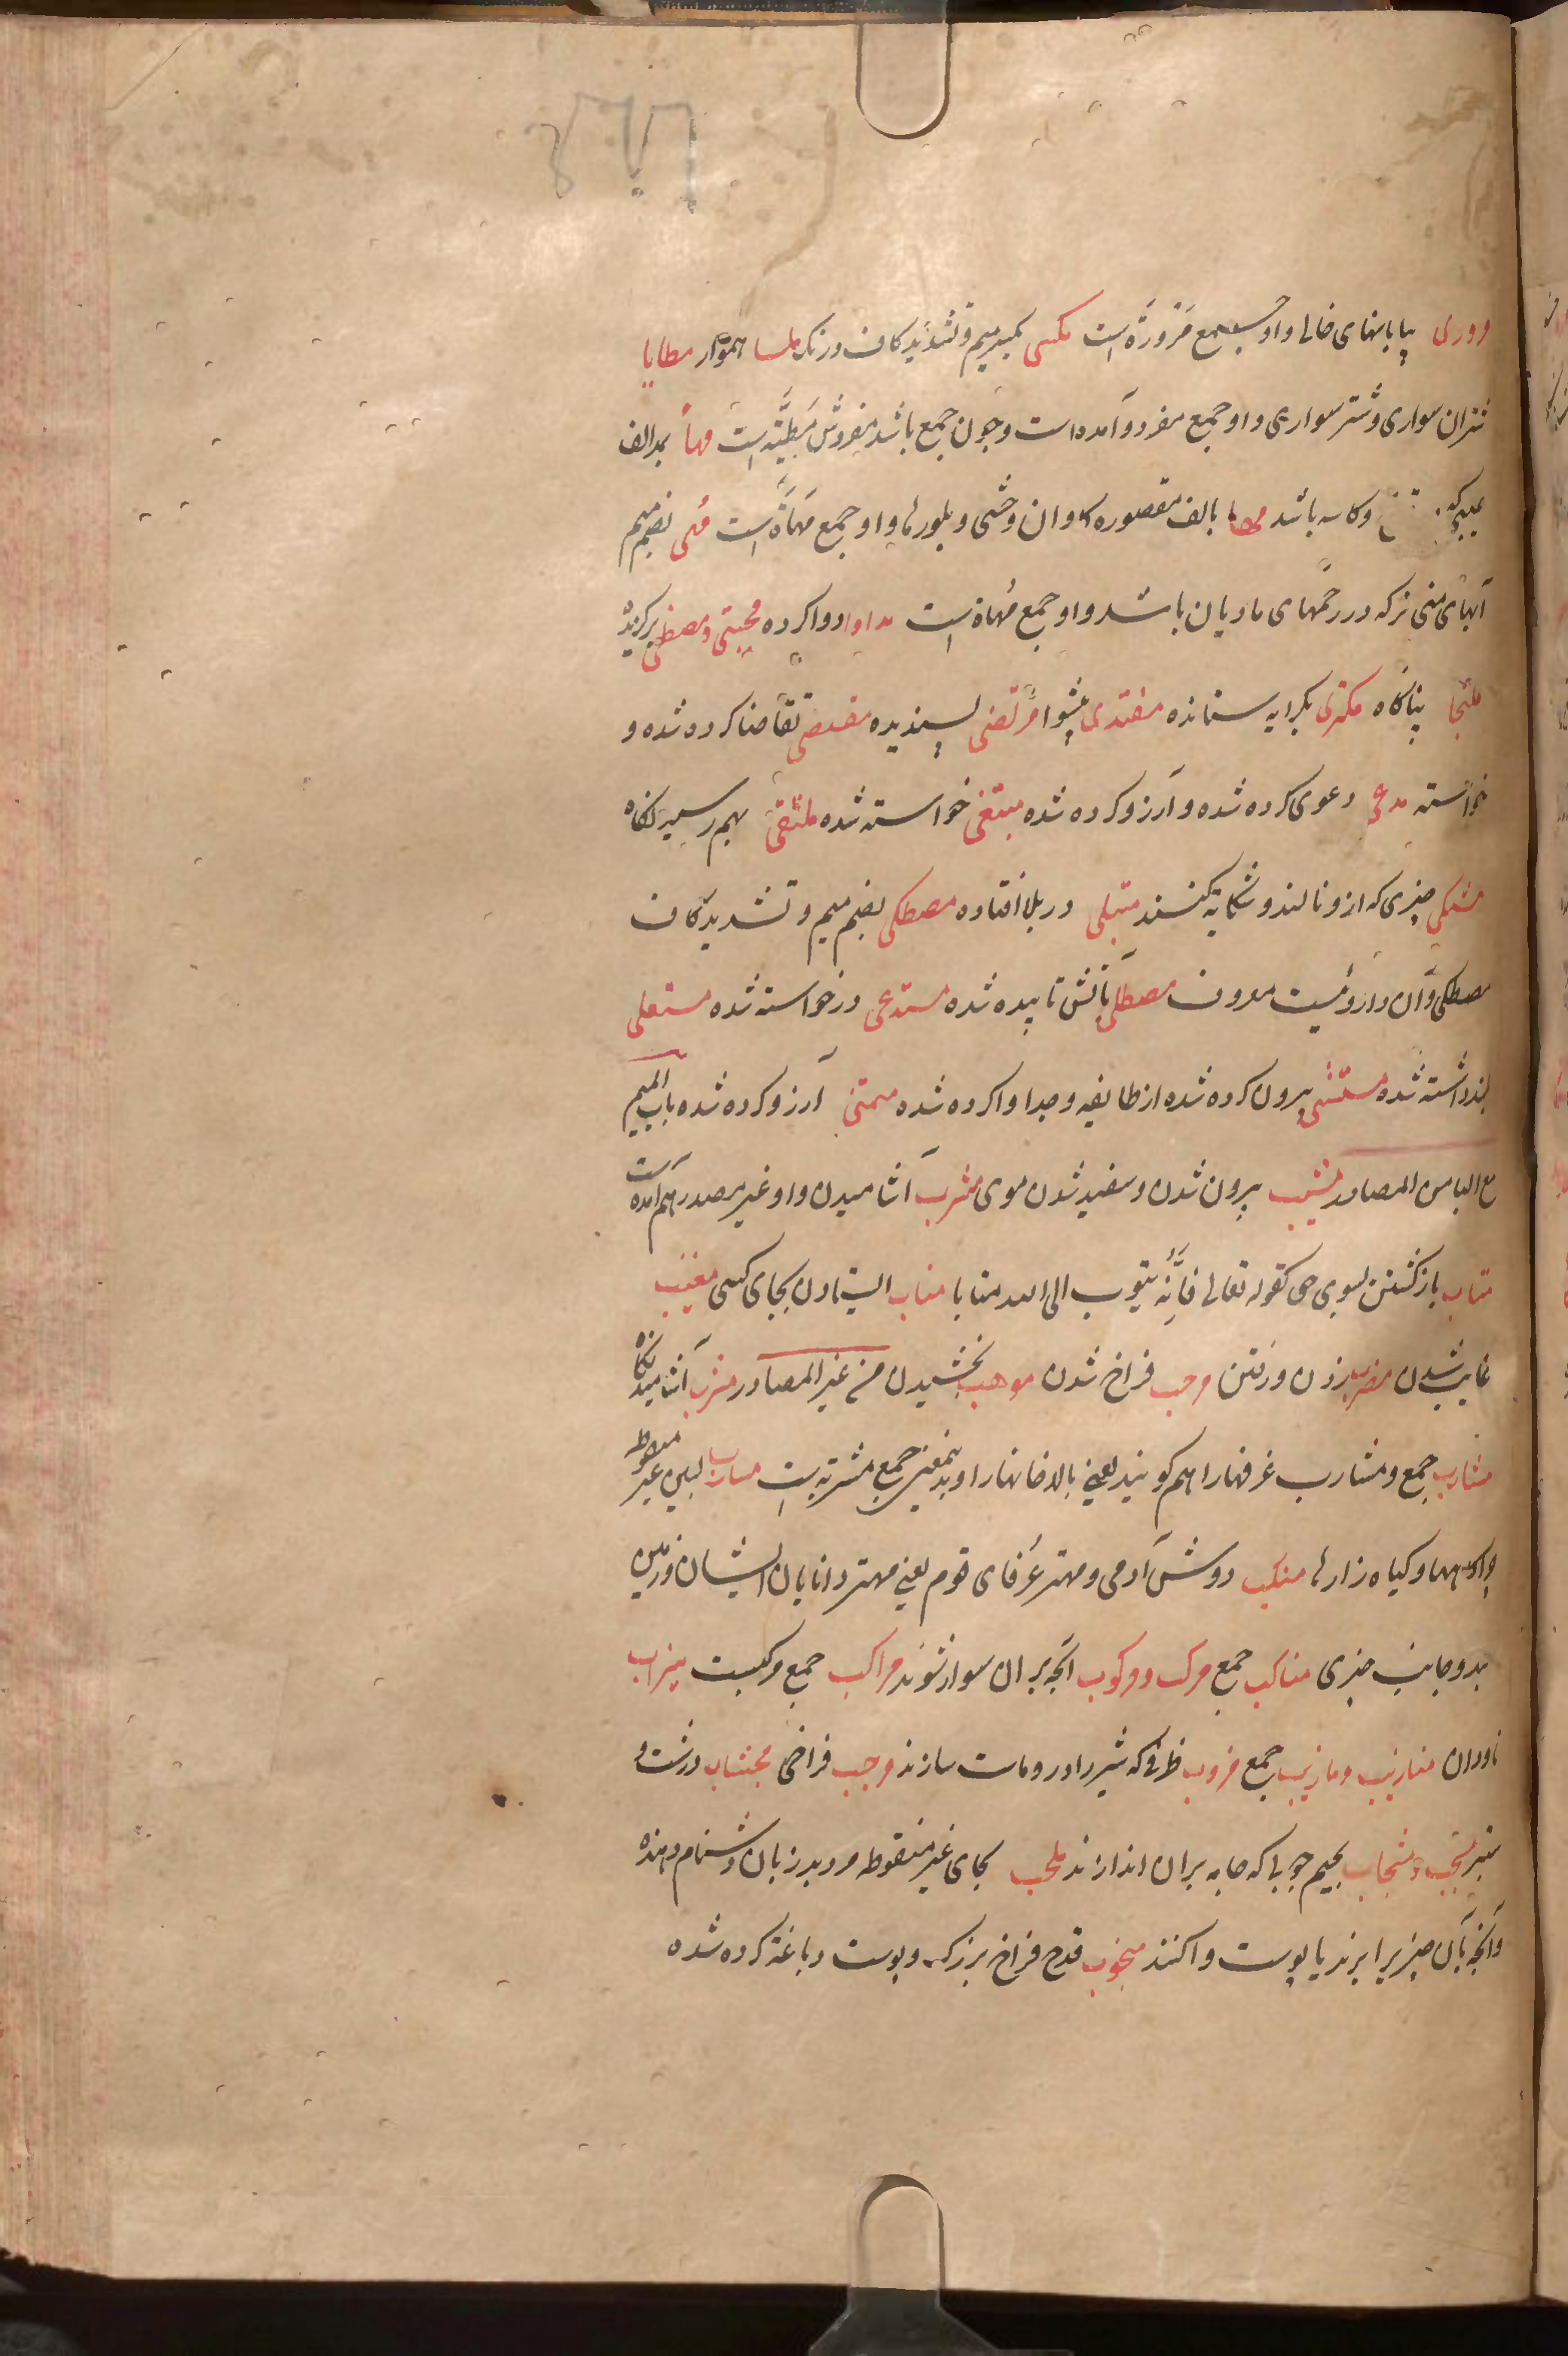 مروری بیابانهای خالی و او جمع مَرَورَدة است مکسی بکسر میم و تشدید کاف درنک ملسا هموار مطایا
شتران سواری و شتر سواری و او جمع مفرد و آمده است و چون جمع باشد مفردش مَطِیَّة است مهأ بمد الف
وکاسه باشد مها بالف مقصوره کاوان وحشی و بلورها و او جمع مَهَاة است مُهی بضم میم
آبهای منی نر که در رحمهای مادیان باشد و او جمع مُهاة است مداوا دوا کرده مجتبی و مصطفی برکزیده
ملتجا پناکاه مکتری بکرایه ستانده مقتدی پیشوا مرتضی پسندیده مقتضی تقاضا کرده شده و
خواسته مدعی دعوی کرده شده و آرزو کرده شده مبتغی خواسته شده ملتقی بهم رسید نکاه
مشتکی چیزی که ازو نالند و شکایة کنند مبتلی در بلا افتاده مصطکی بضم میم و تشدید کاف
مصطکی و آن داروئیست معروف مصطلی بآتش تابیده شده مستدعی درخواسته شده مستعلی
بلند داشته شده مستثنی بیرون کرده شده از طایفه و جدا وا کرده شده متمنی آرزو کرده شده باب المیم
مع الباء من المصادر مشیب پیرون شدن و سفید شدن موی مشرب آشامیدن و او غیر مصدر هم آمده است
متاب بازکشتن بسوی حق کقوله تعالی فَاِنَّهُ یتوب الی الله متابا مناب ایستادن بجای کسی مغیب
غایب شدن مضرب زدن و رفتن مرحب فراخ شدن موهب بخشیدن من غیر المصادر مشرب آشامیدنکاه
مشارب جمع و مشارب غرفهارا هم کویند یعنی بالاخانهارا و بدینمعنی جمع مشربة است مسارب بسین غیر منقوطه
چراکاهها و کیاه زارها منکب دوش آدمی و مهتر عُرَفای قوم یعنی مهتر دانایان ایشان و زمین
بدو جانب چیزی مناکب جمع مرکب و مرکوب آنچه بران سوار شوند مراکب جمع مرکبست میزاب
ناودان منازیب و مازیب جمع مروب ظرفی که شیر را درو ماست سازند مرحب فراخی مجشاب درشت و
سبز مشجب و مشجاب بجیم چوبی که جامه بران اندازند ملحب بحای غیر منقوطه مرد بد زبان و دشنام دهنده
و آنچه بآن چیزیرا برند یا پوست وا کنند منجوب قدح فراخ بزرک و پوست دباغة کرده شده